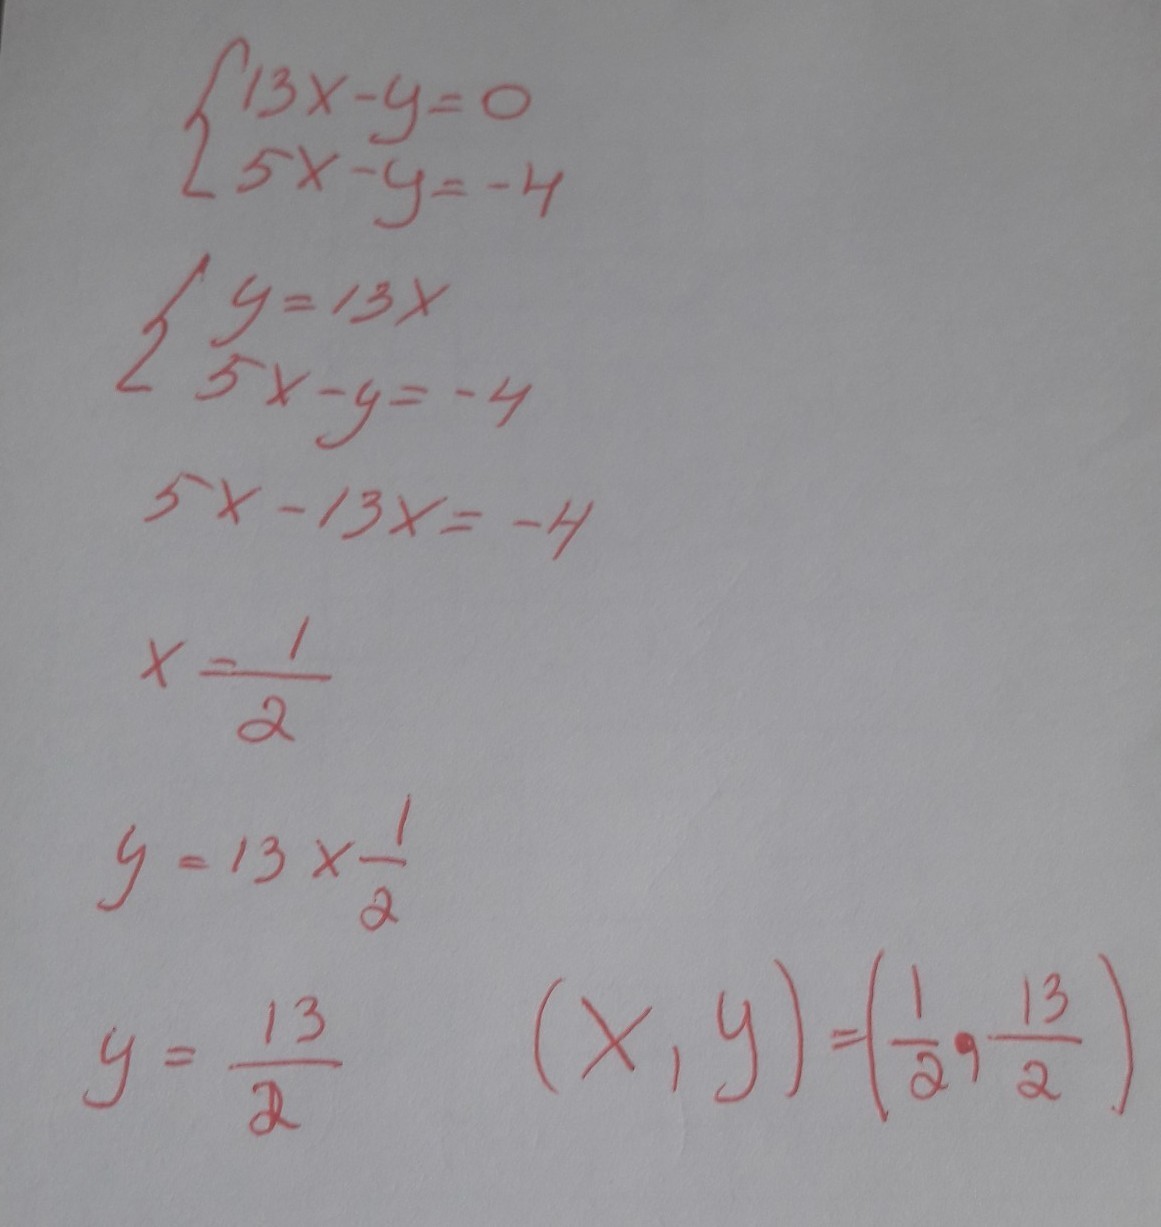 {13x-y=0
5x-y=-4
{y=13x
5x-y=-4
5x-13x=-4
x=1/2
y=13×1/2
y=13/2
(x,y)=(1/2,13/2)